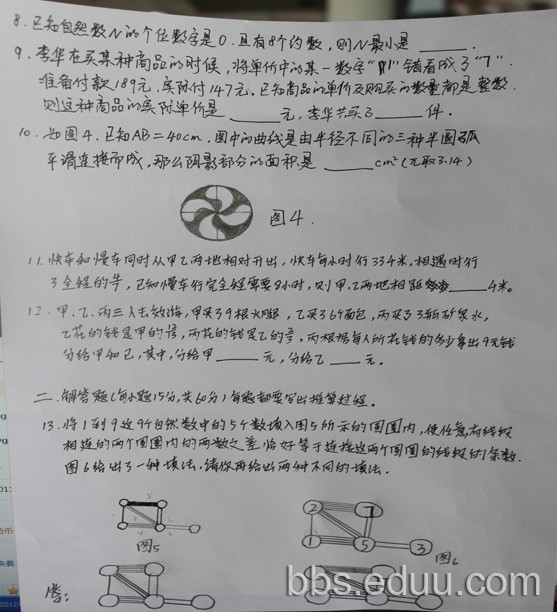 8. 已知自然数N的个位数字是0. 且有8个约数, 则N最小是 ____ .
9. 李华在买某种商品的时候, 将单价中的某一数字"1"错看成了"7".
准备付款189元, 实际付147元. 已知商品的单价及购买的数量都是整数.
则这种商品的实际单价是 ____ 元, 李华共买了 ____ 件.
10. 如图4. 已知AB=40cm, 图中的曲线是由半径不同的三种半圆弧
平滑连接而成, 那么阴影部分的面积是 ____ cm² (π取3.14)
图4.
11. 快车和慢车同时从甲乙两地相对开出, 快车每小时行33千米, 相遇时行
了全程的 , 已知慢车行完全程需要8小时, 则甲.乙两地相距 ____ 千米.
12. 甲、乙、丙三人去效游, 甲买了9根火腿, 乙买了6个面包, 丙买了3瓶矿泉水,
乙花的钱是甲的 , 丙花的钱是乙的 , 丙根据每人所花钱的多少拿出9元钱
分给甲和乙, 其中, 分给甲 ____ 元, 分给乙 ____ 元.
二. 解答题(每小题15分, 共60分) 每题都要写出推算过程.
13. 将1到9这9个自然数中的5个数填入图5所示的圆圈内, 使任意有线段
相连的两个圆圈内的两数之差恰好等于连接这两个圆圈的线段的条数.
图6给出了一种填法, 请你再给出两种不同的填法.
图5
2
7
1
5
3
图6
答:
bbs.eduu.com